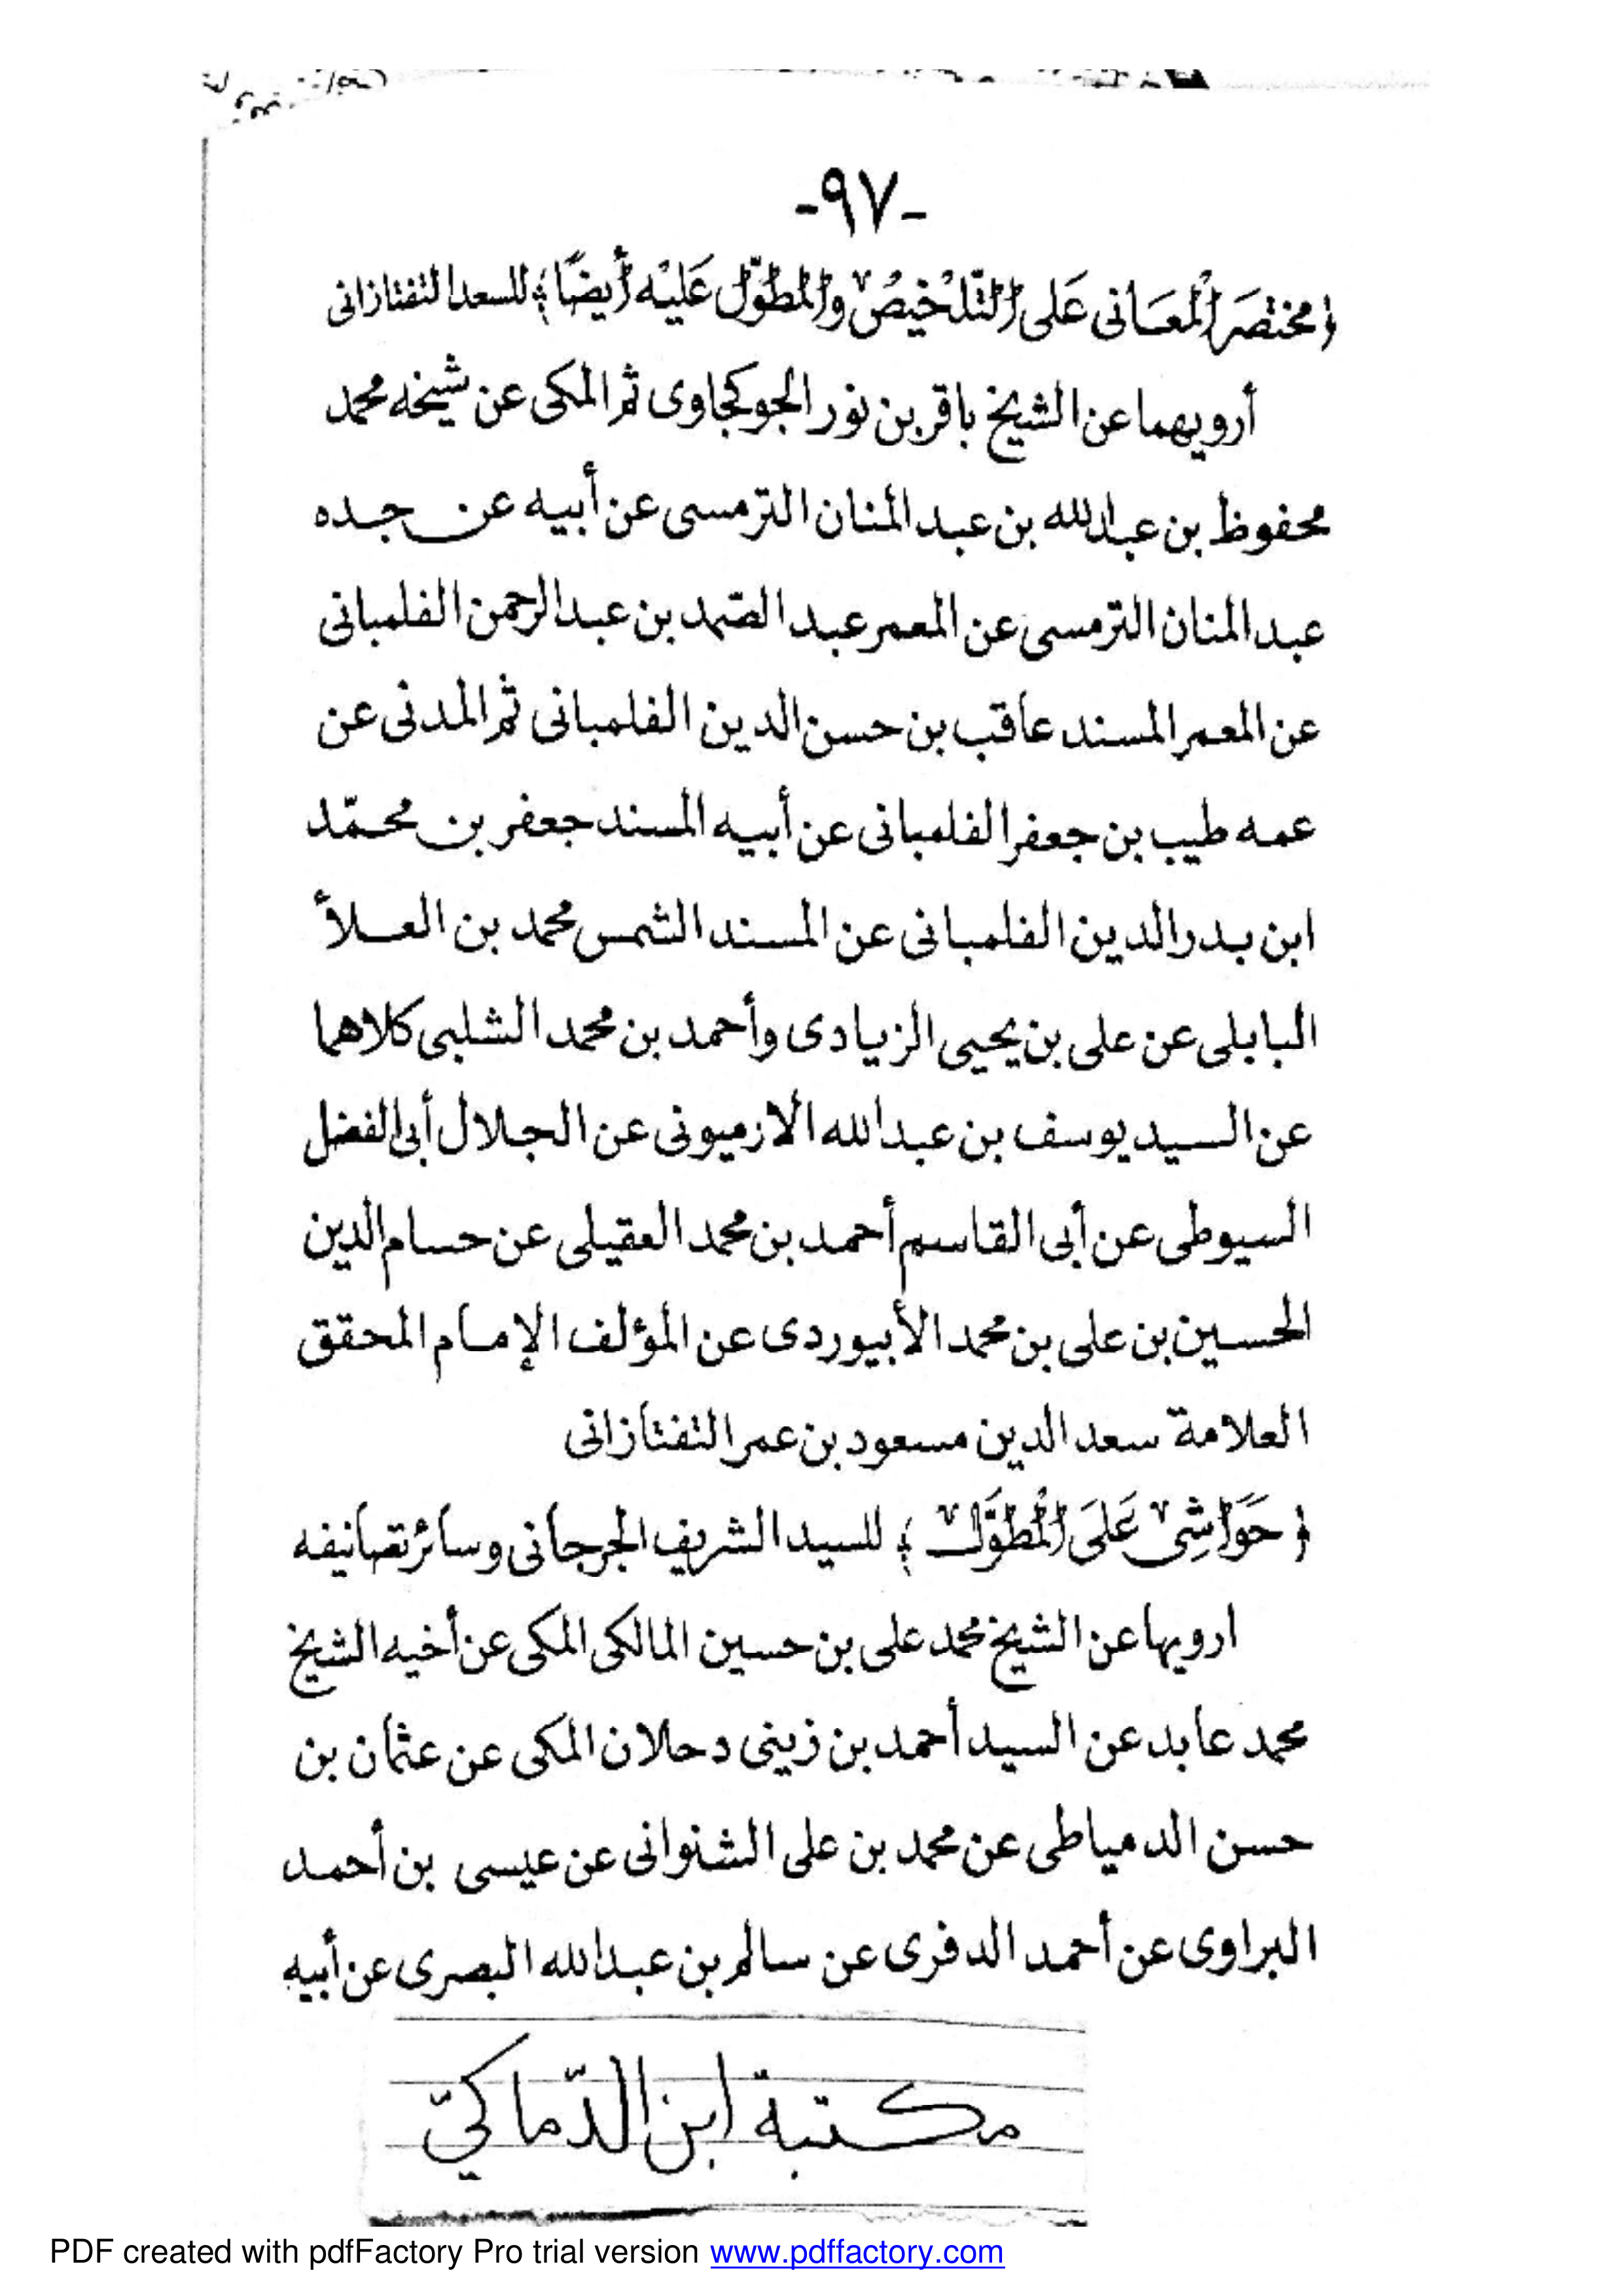 -٩٧-
﴿مختصَر المعَانى عَلى التّلخيصْ والمطوّل عَليْه أيضًا﴾ للسعد التفتازانى
أرويهما عن الشيخ باقر بن نور الجوكجاوى ثم المكى عن شيخه محمد
محفوظ بن عبدالله بن عبد المنان الترمسى عن أبيه عن جده
عبد المنان الترمسى عن المعمر عبد الصّمد بن عبد الرحمن الفلمبانى
عن المعمر المسند عاقب بن حسن الدين الفلمبانى ثم المدنى عن
عمه طيب بن جعفر الفلمبانى عن أبيه المسند جعفر بن محمّد
ابن بدر الدين الفلمبانى عن المسند الشمس محمد بن العلأ
البابلى عن على بن يحيى الزيادى وأحمد بن محمد الشلبى كلاهما
عن السيد يوسف بن عبد الله الارميونى عن الجلال أبى الفضل
السيوطى عن أبى القاسم أحمد بن محمد العقيلى عن حسام الدين
الحسين بن على بن محمد الأبيوردى عن المؤلف الإمام المحقق
العلامة سعد الدين مسعود بن عمر التفتازانى
﴿حَوَاشِىْ عَلَى المُطوَّلْ﴾ للسيد الشريف الجرجانى وسائر تصانيفه
ارويها عن الشيخ محمد على بن حسين المالكى المكى عن أخيه الشيخ
محمد عابد عن السيد أحمد بن زينى دحلان المكى عن عثمان بن
حسن الدمياطى عن محمد بن على الشنوانى عن عيسى بن أحمد
البراوى عن أحمد الدفرى عن سالم بن عبدالله البصرى عن أبيه
مكتبة ابن الدّماكيّ
PDF created with pdfFactory Pro trial version www.pdffactory.com